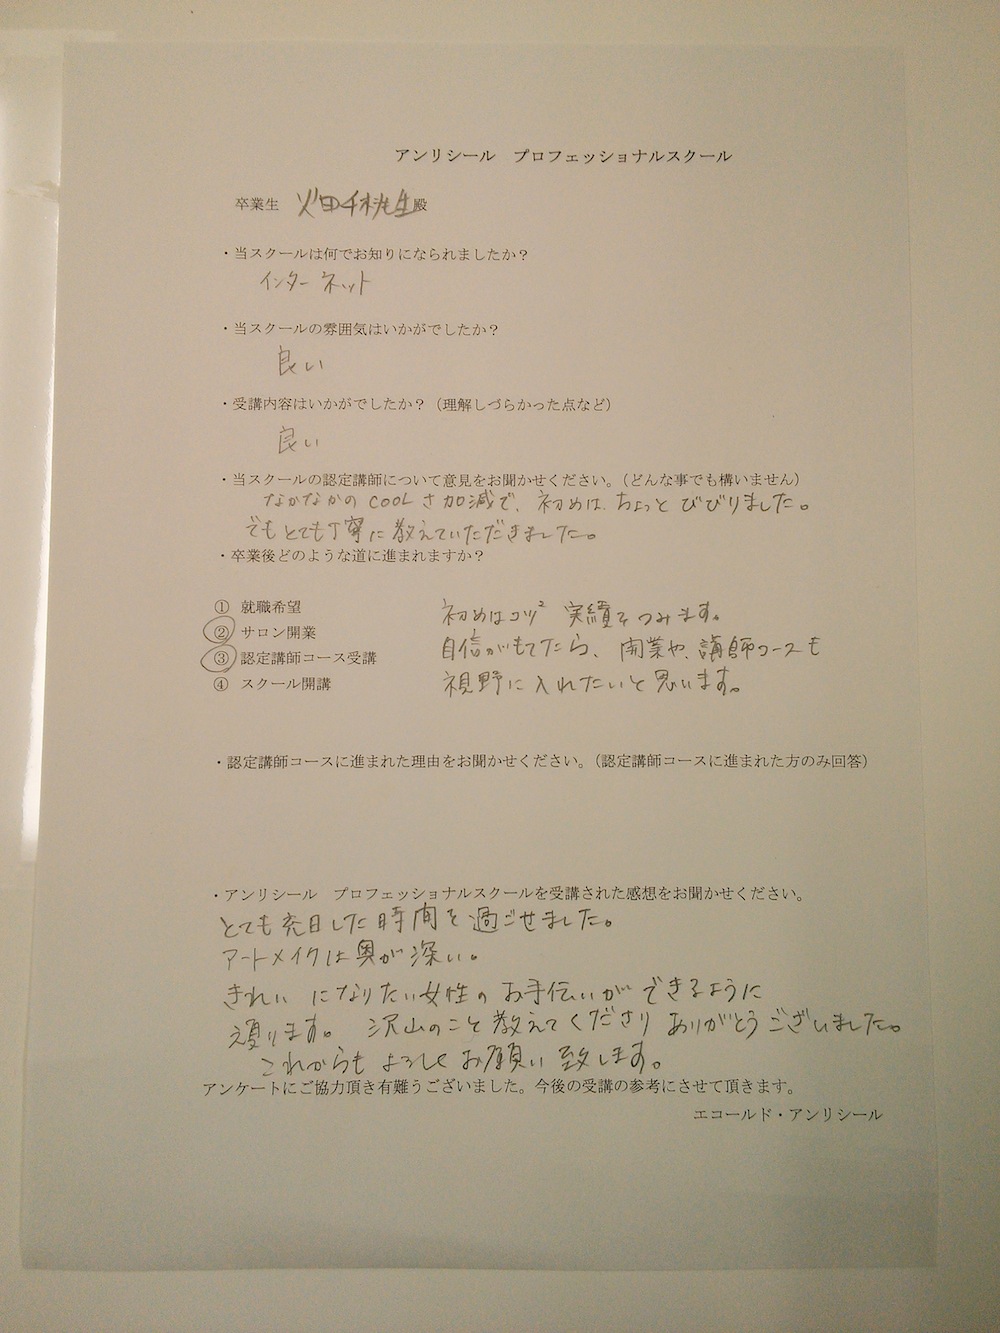 アンリシール　プロフェッショナルスクール
卒業生　殿
・当スクールは何でお知りになられましたか？
インターネット
・当スクールの雰囲気はいかがでしたか？
良い
・受講内容はいかがでしたか？（理解しづらかった点など）
良い
・当スクールの認定講師について意見をお聞かせください。（どんな事でも構いません）
なかなかのCOOLさ加減で、初めは、ちょっとびびりました。
でもとても丁寧に教えていただきました。
・卒業後どのような道に進まれますか？
①　就職希望
②　サロン開業
③　認定講師コース受講
④　スクール開講
初めはコツ² 実績をつみます。
自信がもてたら、開業や、講師コースも
視野に入れたいと思います。
・認定講師コースに進まれた理由をお聞かせください。（認定講師コースに進まれた方のみ回答）
・アンリシール　プロフェッショナルスクールを受講された感想をお聞かせください。
とても充日した時間を過ごせました。
アートメイクは奥が深い。
きれい になりたい女性の お手伝いが できるように
ります。 沢山のこと教えてくださり ありがとうございました。
これからも よろしくお願い致します。
アンケートにご協力頂き有難うございました。今後の受講の参考にさせて頂きます。
エコールド・アンリシール